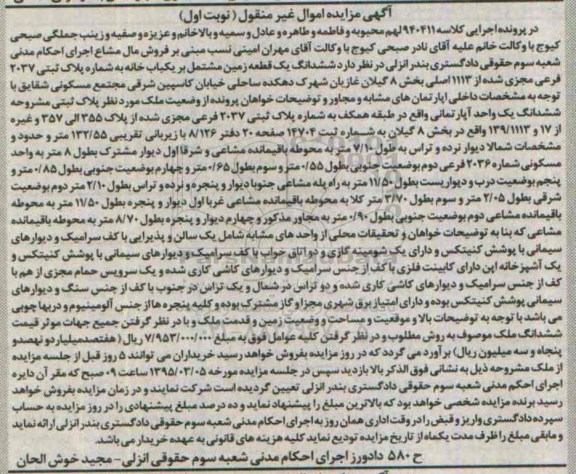 آگهی مزایده اموال غیر منقول ( نوبت اول)
در پرونده اجرایی کلاسه ۹۴۰۴۱۱ لهم محبوبه و فاطمه و طاهره و عادل و سمیه و بالاخانم و عزیزه و صفیه و زینب جملگی صبحی
کیوج با وکالت خانم علیه آقای نادر صبحی کیوج با وکالت آقای مهران امینی نسب مبنی بر فروش مال مشاع اجرای احکام مدنی
شعبه سوم حقوقی دادگستری بندر انزلی در نظر دارد ششدانگ یک قطعه زمین مشتمل بر یکباب خانه به شماره پلاک ثبتی ۲۰۳۷
فرعی مجزی شده از ۱۱۱۳ اصلی بخش ۸ گیلان غازیان شهرک دهکده ساحلی خیابان کاسپین شرقی مجتمع مسکونی شقایق با
توجه به مشخصات داخلی آپارتمان های مشابه و مجاور و توضیحات خواهان پرونده از وضعیت ملک مورد نظر پلاک ثبتی مشروحه
ششدانگ یک واحد آپارتمانی واقع در طبقه همکف به شماره پلاک ثبتی ۲۰۳۷ فرعی مجزی شده از پلاک ۳۵۵ الی ۳۵۷ و غیره
از ۱۷ و ۱۳۹/۱۱۱۳ واقع در بخش ۸ گیلان به شماره ثبت ۱۴۷۰۲ صفحه ۲۰ دفتر ۸/۱۲۶ با زیربنای تقریبی ۱۳۲/۵۵ متر و حدود و
مشخصات شمالا دیوار نرده و تراس به طول ۷/۱۰ متر به محوطه باقیمانده مشاعی و شرقا اول دیوار مشترک بطول ۸ متر به واحد
مسکونی شماره ۲۰۳۶ فرعی دوم بوضعیت جنوبی بطول ۰/۵۵ متر و سوم بطول ۰/۶۵ متر و چهارم بوضعیت جنوبی بطول ۰/۸۵ متر و
پنجم بوضعیت درب و دیواریست بطول ۱۱/۵۰ متر به راه پله مشاعی جنوبا دیوار و پنجره و نرده و تراس بطول ۲/۱۰ متر دوم بوضعیت
شرقی بطول ۲/۰۵ متر و سوم بطول ۳/۷۰ متر کلا به محوطه باقیمانده مشاعی غربا اول دیوار و پنجره بطول ۱۱/۵۰ متر به محوطه
باقیمانده مشاعی دوم بوضعیت جنوبی بطول ۰/۹۰ متر به مجاور مذکور و چهارم دیوار و پنجره بطول ۸/۷۰ متر به محوطه باقیمانده
مشاعی که بنا به توضیحات خواهان و تحقیقات محلی از واحد های مشابه شامل یک سالن و پذیرایی با کف سرامیک و دیوارهای
سیمانی با پوشش کنیتکس و دارای یک شومینه گازی و دو اتاق خواب با کف سرامیک و دیوارهای سیمانی با پوشش کنیتکس و
یک آشپزخانه اپن دارای کابینت فلزی با کف از جنس سرامیک و دیوارهای کاشی کاری شده و یک سرویس حمام مجزی از هم با
کف از جنس سرامیک و دیوارهای کاشی کاری شده و دو تراس در شمال و یک تراس در جنوب با کف از جنس سنگ و دیوارهای
سیمانی پوشش کنیتکس بوده و دارای امتیاز برق شهری مجزا و گاز مشترک بوده و کلیه پنجره ها از جنس آلومینیوم و دربها چوبی
می باشد با توجه به توضیحات بالا و موقعیت و مساحت و وضعیت زمین و قدمت ملک و با در نظر گرفتن جمیع جهات موثر قیمت
ششدانگ ملک موصوف به روش مطلوب و در نظر گرفتن کلیه عوامل فوق به مبلغ ۷/۹۵۳/۰۰۰/۰۰۰ ریال ( هفتصدمیلیارد نهصدو
پنجاه و سه میلیون ریال) برآورد می گردد که در روز مزایده بفروش خواهد رسید خریداران می توانند ۵ روز قبل از جلسه مزایده
از ملک مشروحه ذیل به نشانی فوق الذکر بالا بازدید سپس در جلسه مزایده مورخه ۱۳۹۵/۰۳/۰۵ ساعت ۰۹ صبح که مقر آن دایره
اجرای احکم مدنی شعبه سوم حقوقی دادگستری بندر انزلی تعیین گردیده است شرکت نمایند و در زمان مزایده بفروش خواهد
رسید برنده مزایده شخصی خواهد بود که بالاترین مبلغ را پیشنهاد نماید و ده درصد مبلغ پیشنهادی را در روز مزایده به حساب
سپرده دادگستری واریز و قبض را در وقت اداری همان روز به اجرای احکام مدنی شعبه سوم حقوقی دادگستری بندر انزلی ارائه نماید
و مابقی مبلغ را ظرف مدت یکماه از تاریخ مزایده تودیع نماید کلیه هزینه های قانونی به عهده خریدار می باشد.
ح ۵۸۰ دادورز اجرای احکام مدنی شعبه سوم حقوقی انزلی- مجید خوش الحان